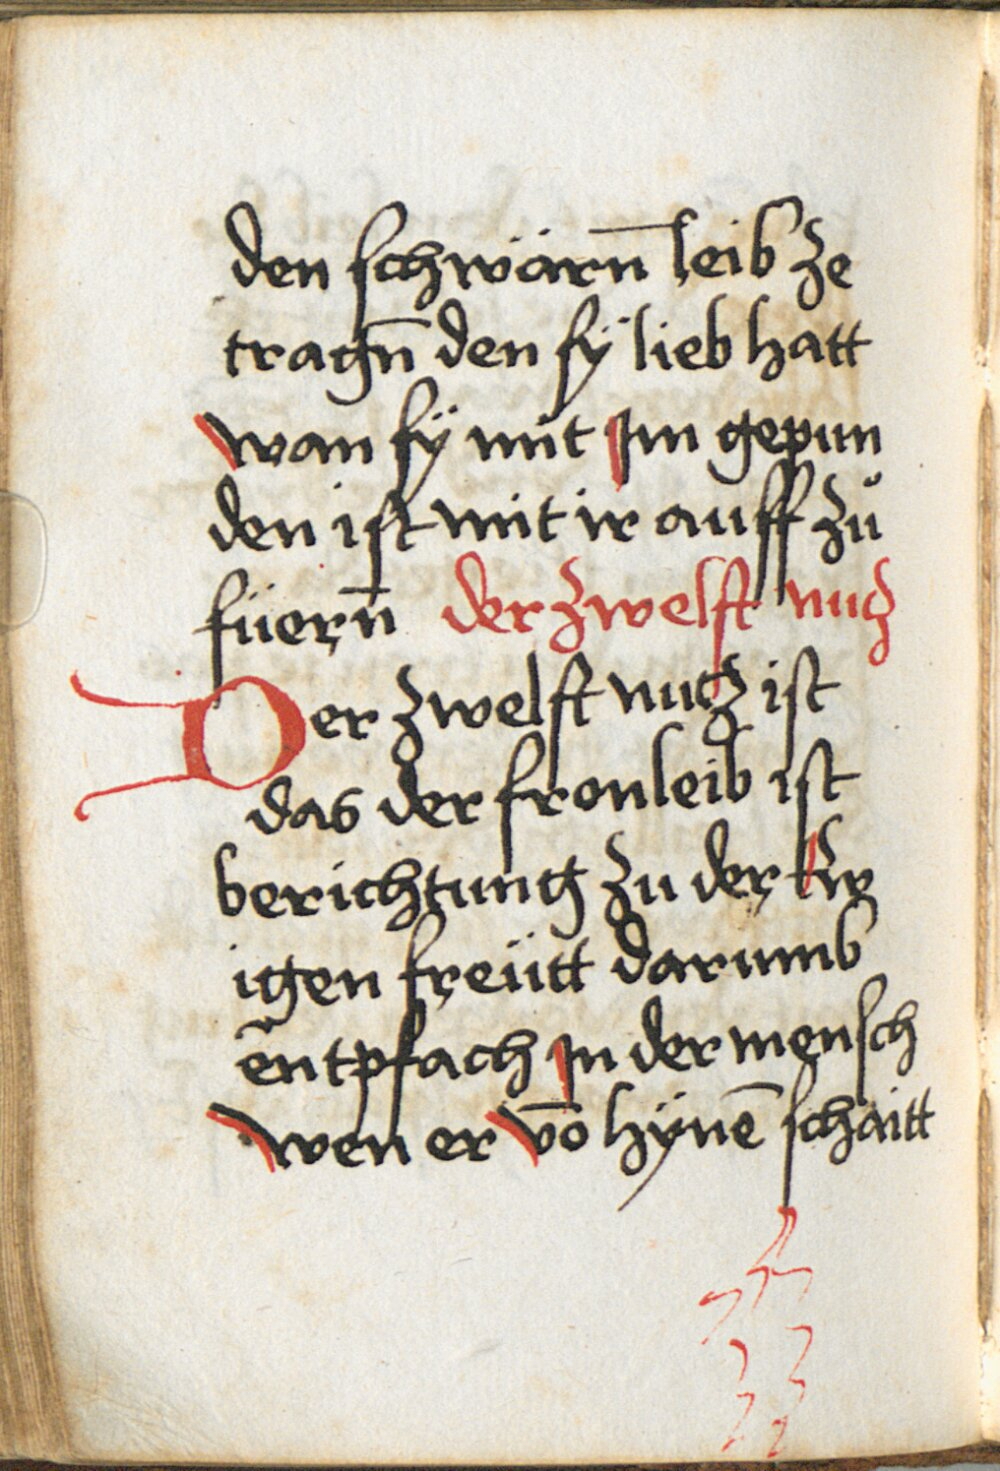 den schwärn̄ leib ze
tragn̄ den sÿ lieb hatt
wan sÿ mit Im gepun
den ist mit ir auff zů
füern̄ der zwelft nucz
Der zwelft nucz ist
das der fronleib ist
berichtung zu der Ew
igen freütt darumb
entpfach In der mensch
wen er vō hÿnē schaitt